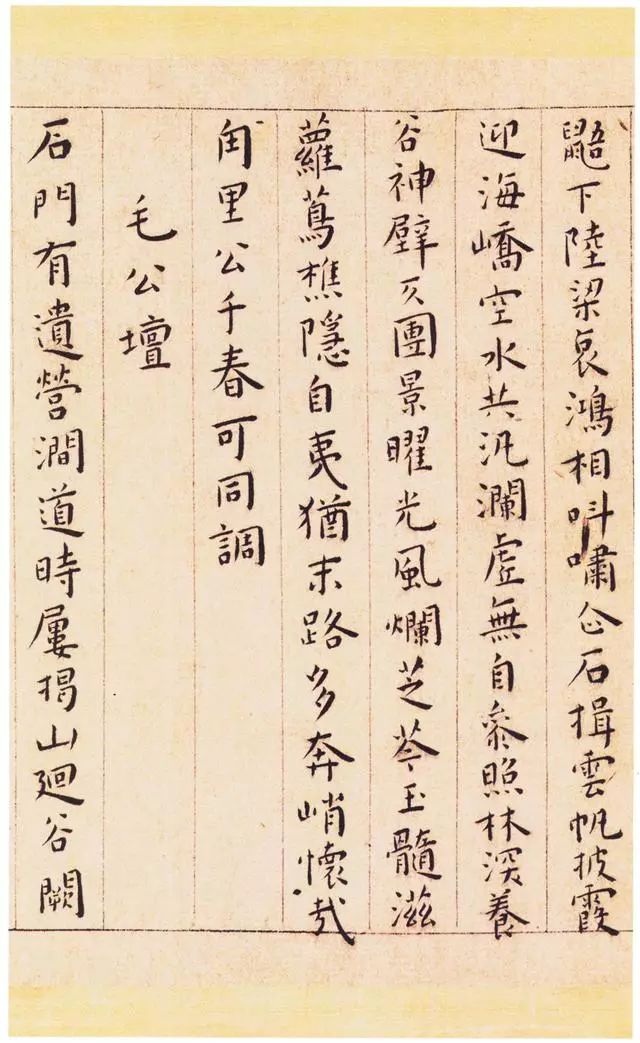 鼯下陸梁哀鴻相叫嘯仚石揖雲帆披霞
迎海嶠空水共汎瀾虛無自叅照林深養
谷神壁仄團景曜光風爛芝苓玉髓滋
蘿蔦樵隱自夷猶末路多奔峭懷哉
甪里公千春可同調
毛公壇
石門有遺營澗道時屢揭山廻谷闕